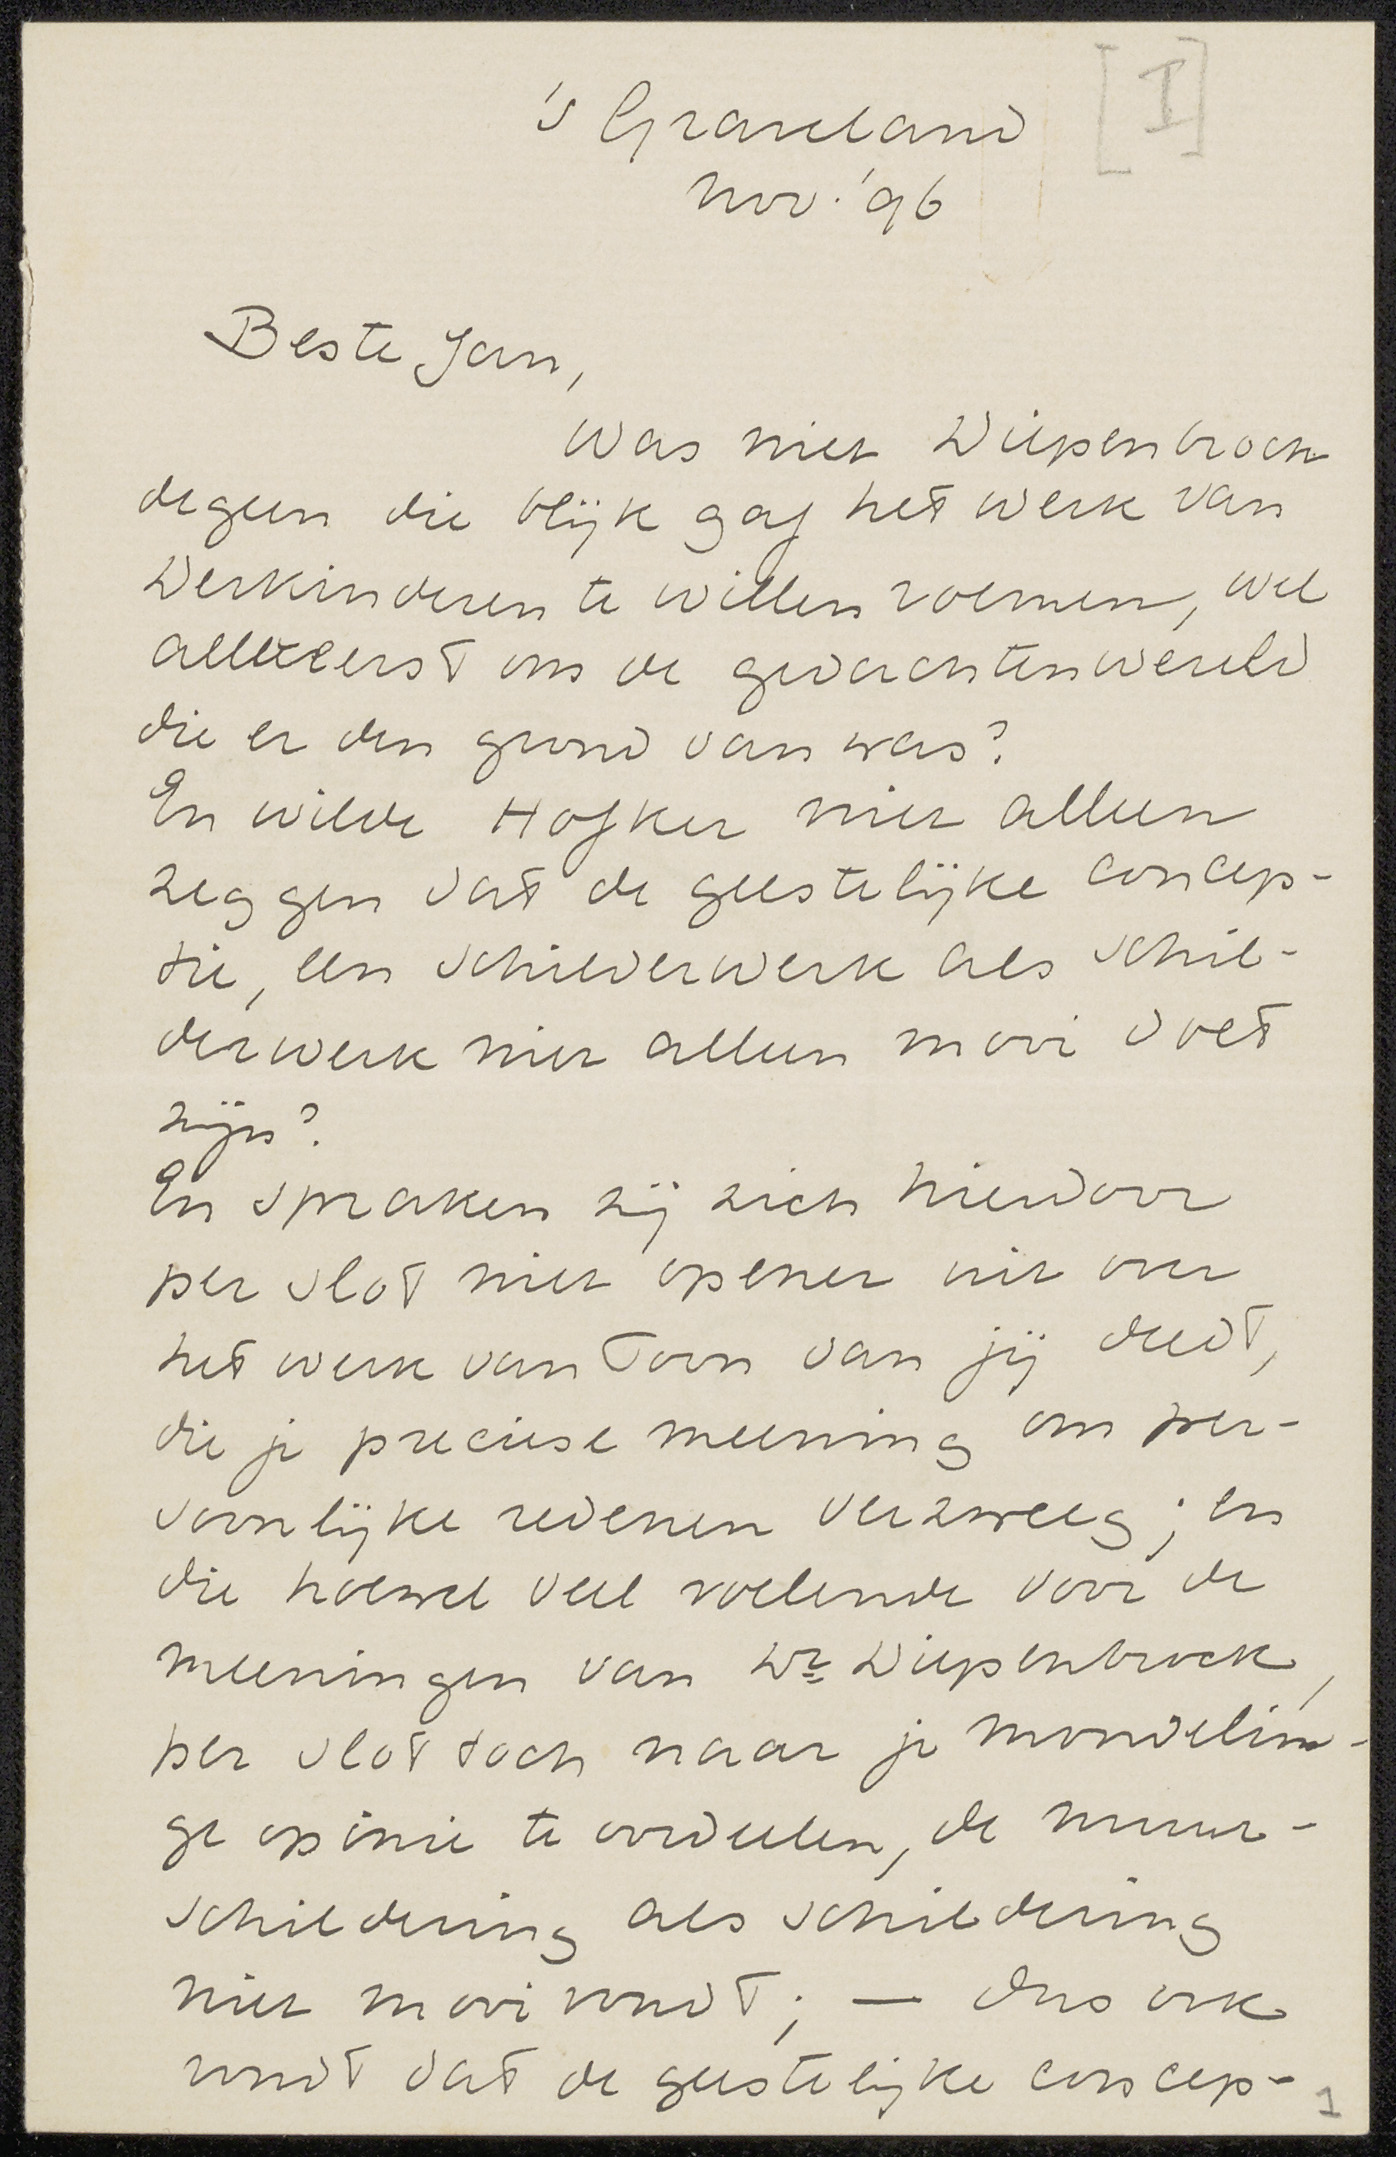 [I]
's Graveland
Nov. '96
Beste Jan,
Was niet Diepenbrock
degeen die blijk gaf het werk van
Derkinderen te willen roemen, wel
allereerst om de gedachtenwereld
die er den grond van was?
En wilde Hofker niet alleen
zeggen dat de geestelijke concep-
tie, een schilderwerk als schil-
derwerk niet alleen mooi doet
zijn?
En spraken zij zich hierdoor
per slot niet opener uit over
het werk van Toon dan jij deedt,
die je preciese meening om per-
soonlijke redenen verzweeg; en
die hoewel veel voelende voor de
meeningen van Dr Diepenbrock,
per slot toch naar je mondelin-
ge opinie te oordeelen, de muur-
schildering als schildering
niet mooi vondt; — dus ook
vondt dat de geestelijke concep-
1